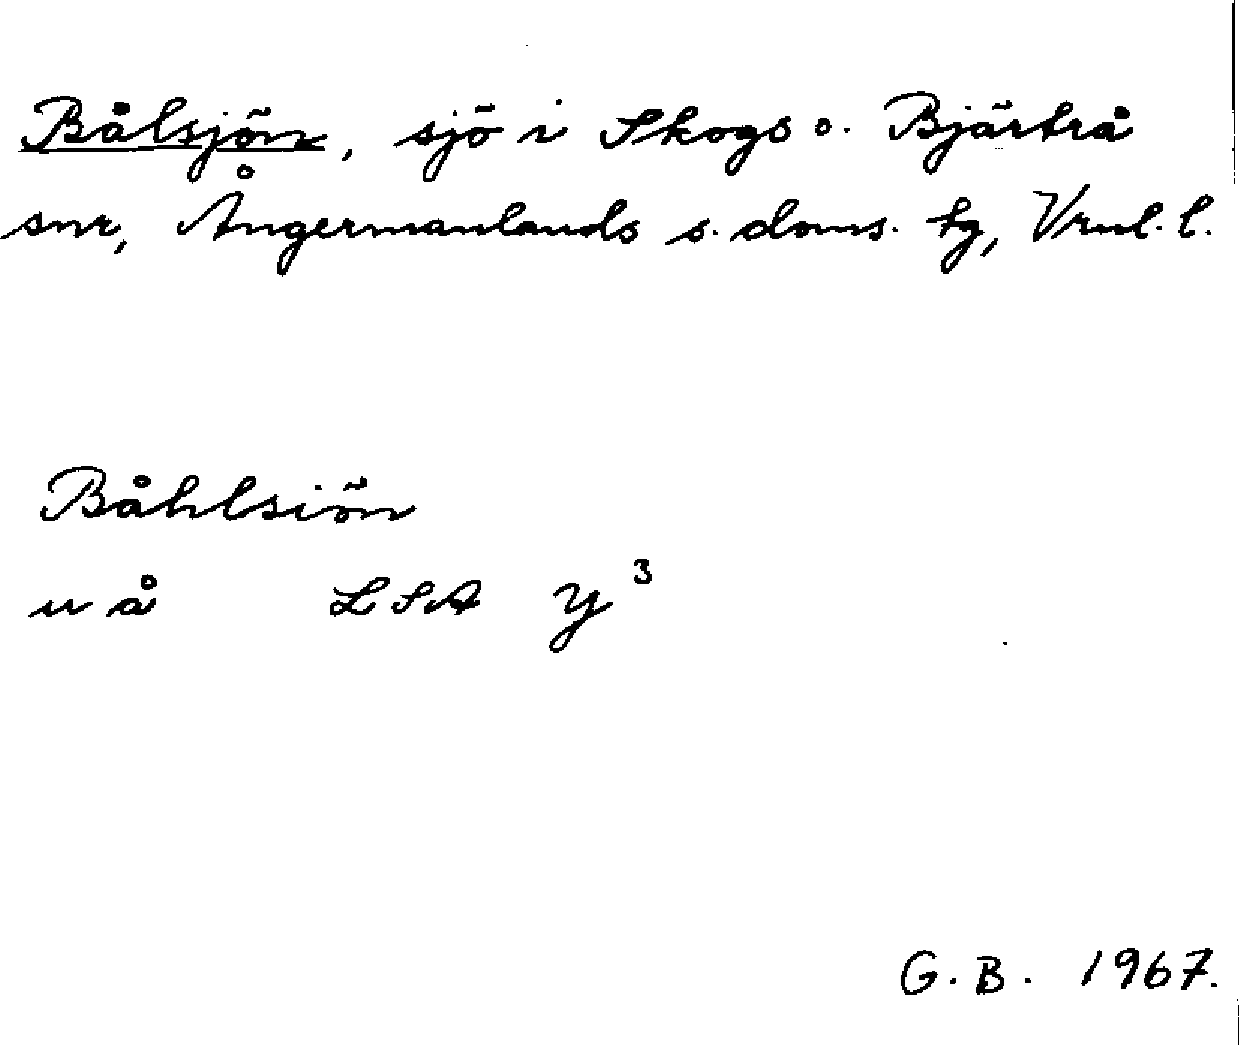 Bålsjön, sjö i Skogs o. Bjärtrå
snr, Ångermanlands s. doms. tg, Vrnl. l.
Båhlsiön
u å LSA Y³
G. B. 1967.